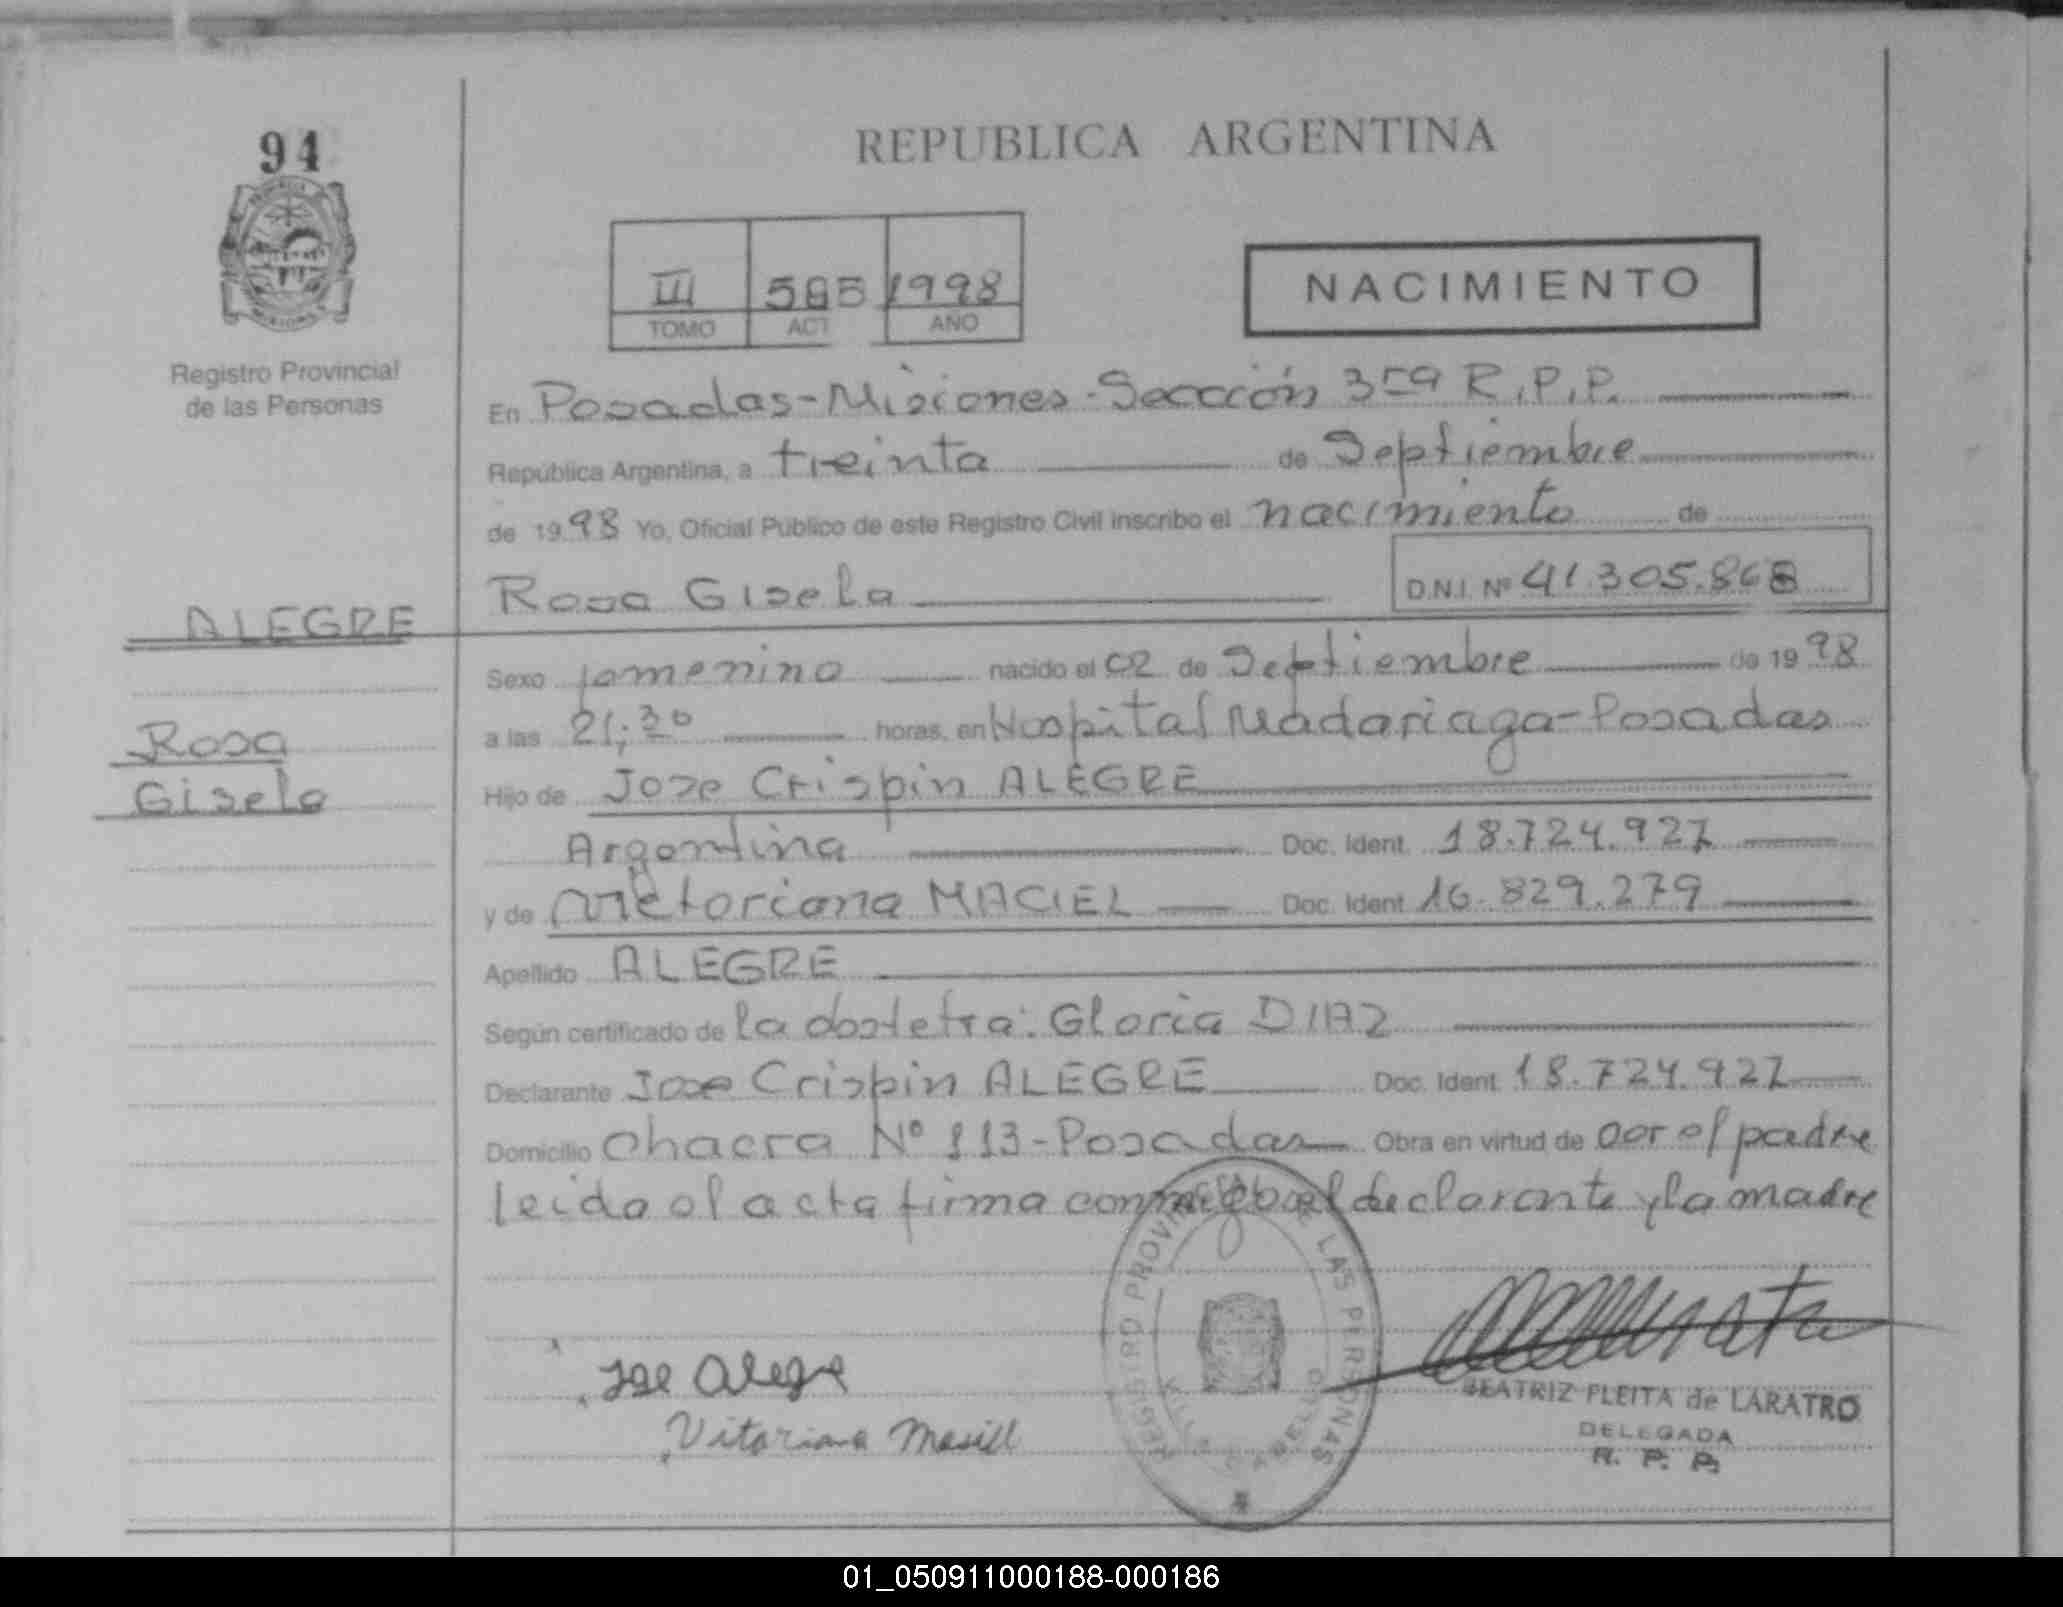 94
REPUBLICA ARGENTINA
III 1998
TOMO ACT AÑO
NACIMIENTO
Registro Provincial
de las Personas
En Posadas-Misiones-Sección 3ra R.P.P.
República Argentina, a treinta de Septiembre
de 1998 Yo, Oficial Público de este Registro Civil inscribo el nacimiento de
Rosa Gisela D.N.I. Nº 41.305.868
ALEGRE
Rosa
Gisela
Sexo femenino nacido el 02 de Septiembre de 1998
a las 21;30 horas, en Hospital Madariaga-Posadas
Hijo de Jose Crispin ALEGRE
Argentina Doc. Ident. 18.724.927
y de Victoriana MACIEL Doc. Ident. 16.829.279
Apellido ALEGRE
Según certificado de la obstetra: Gloria DIAZ
Declarante Jose Crispin ALEGRE Doc. Ident. 18.724.927
Domicilio Chacra Nº 113-Posadas Obra en virtud de por el padre
leida el acta firma el declarante y la madre
REGISTRO PROVINCIAL DE LAS PERSONAS
Jose Alegre
Vitoriana
BEATRIZ PLEITA de LARATRO
DELEGADA
R. P. P.
01_050911000188-000186